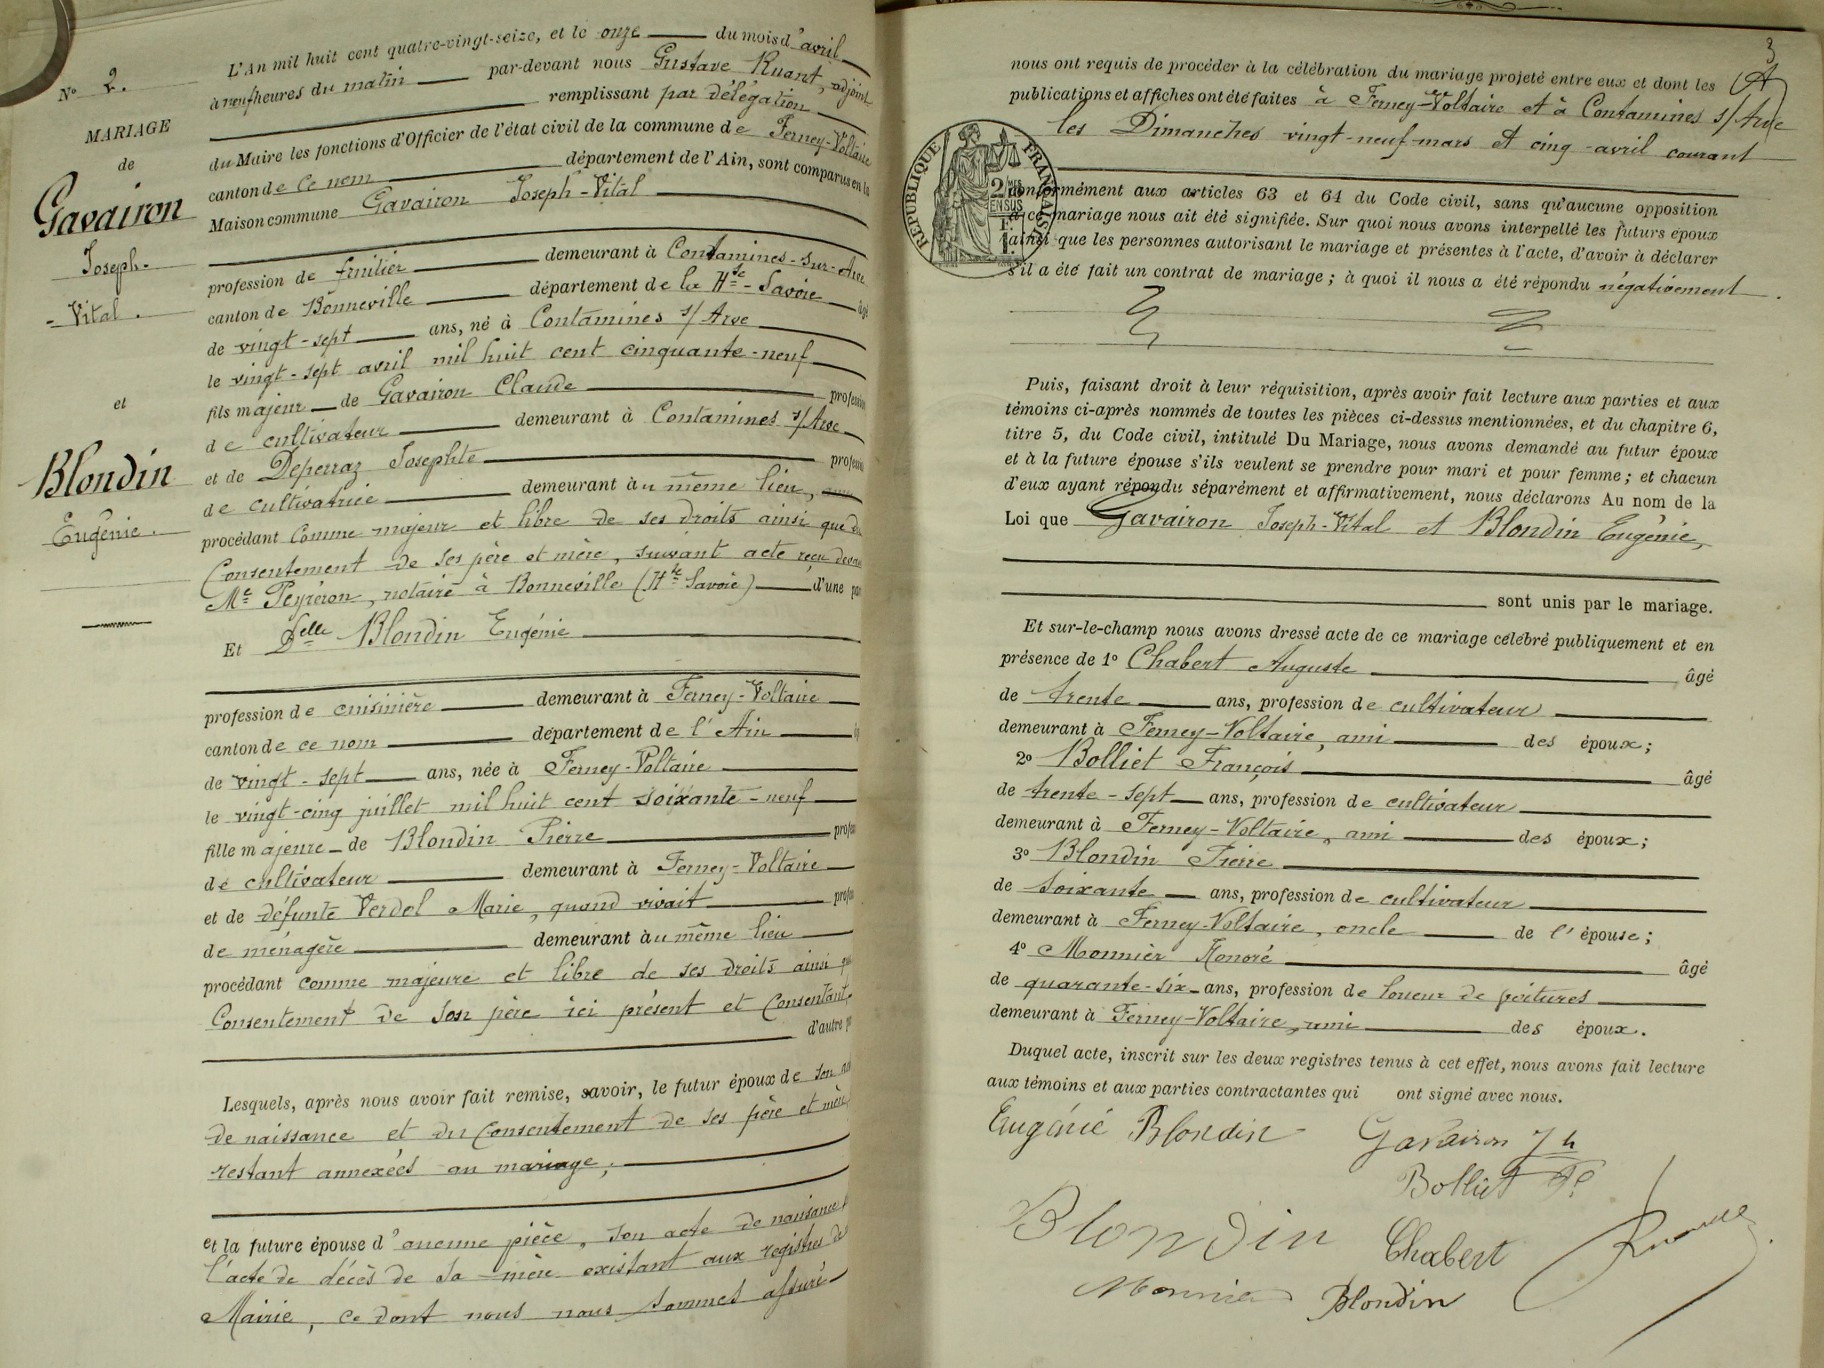 L'An mil huit cent quatre-vingt-seize, et le onze du mois d'avril
à neuf heures du matin par-devant nous Gustave Ruant, adjoint
remplissant par délégation
du Maire les fonctions d'Officier de l'état civil de la commune de Ferney-Voltaire
canton de Ce nom département de l'Ain, sont comparus en la
Maison commune Gavairon Joseph-Vital
profession de fruitier demeurant à Contamines-sur-Arve
canton de Bonneville département de la Hte-Savoie âgé
de vingt-sept ans, né à Contamines s/Arve
le vingt-sept avril mil huit cent cinquante-neuf
fils majeur de Gavairon Claude profession
de cultivateur demeurant à Contamines s/Arve
et de Deperraz Josephte profession
de cultivatrice demeurant au même lieu,
procédant comme majeur et libre de ses droits ainsi que du
Consentement de ses père et mère, suivant acte reçu devant
Me Peyréron, notaire à Bonneville (Hte Savoie) d'une part
Et Delle Blondin Eugénie
profession de cuisinière demeurant à Ferney-Voltaire
canton de ce nom département de l'Ain
de vingt-sept ans, née à Ferney-Voltaire
le vingt-cinq juillet mil huit cent soixante-neuf
fille majeure de Blondin Pierre profes
de cultivateur demeurant à Ferney-Voltaire
et de défunte Verdel Marie, quand vivait profes
de ménagère demeurant au même lieu
procédant comme majeure et libre de ses droits ainsi que
Consentement de son père ici présent et Consentant,
d'autre part
Lesquels, après nous avoir fait remise, savoir, le futur époux de son acte
de naissance et du Consentement de ses père et mère
restant annexées au mariage;
et la future épouse d'aucune pièce, son acte de naissance et
l'acte de décès de sa mère existant aux registres de
Mairie, ce dont nous nous sommes assuré
No 2.
MARIAGE
de
Gavairon
Joseph-
-Vital.
et
Blondin
Eugénie.
3
nous ont requis de procéder à la célébration du mariage projeté entre eux et dont les
publications et affiches ont été faites à Ferney-Voltaire et à Contamines s/Arve
les Dimanches vingt-neuf mars et cinq avril courant
RÉPUBLIQUE FRANÇAISE
conformément aux articles 63 et 64 du Code civil, sans qu'aucune opposition
à ce mariage nous ait été signifiée. Sur quoi nous avons interpellé les futurs époux
ainsi que les personnes autorisant le mariage et présentes à l'acte, d'avoir à déclarer
s'il a été fait un contrat de mariage; à quoi il nous a été répondu négativement.
Puis, faisant droit à leur réquisition, après avoir fait lecture aux parties et aux
témoins ci-après nommés de toutes les pièces ci-dessus mentionnées, et du chapitre 6,
titre 5, du Code civil, intitulé Du Mariage, nous avons demandé au futur époux
et à la future épouse s'ils veulent se prendre pour mari et pour femme; et chacun
d'eux ayant répondu séparément et affirmativement, nous déclarons Au nom de la
Loi que Gavairon Joseph-Vital et Blondin Eugénie,
sont unis par le mariage.
Et sur-le-champ nous avons dressé acte de ce mariage célébré publiquement et en
présence de 1o Chabert Auguste âgé
de trente ans, profession de cultivateur
demeurant à Ferney-Voltaire, ami des époux;
2o Bolliet François âgé
de trente-sept ans, profession de cultivateur
demeurant à Ferney-Voltaire, ami des époux;
3o Blondin Pierre
de soixante ans, profession de cultivateur
demeurant à Ferney-Voltaire, oncle de l'épouse;
4o Monnier Honoré âgé
de quarante-six ans, profession de loueur de voitures
demeurant à Ferney-Voltaire, ami des époux.
Duquel acte, inscrit sur les deux registres tenus à cet effet, nous avons fait lecture
aux témoins et aux parties contractantes qui ont signé avec nous.
Eugénie Blondin Gavairon Jh
Bolliet Fs
Blondin Chabert
Monnier Blondin